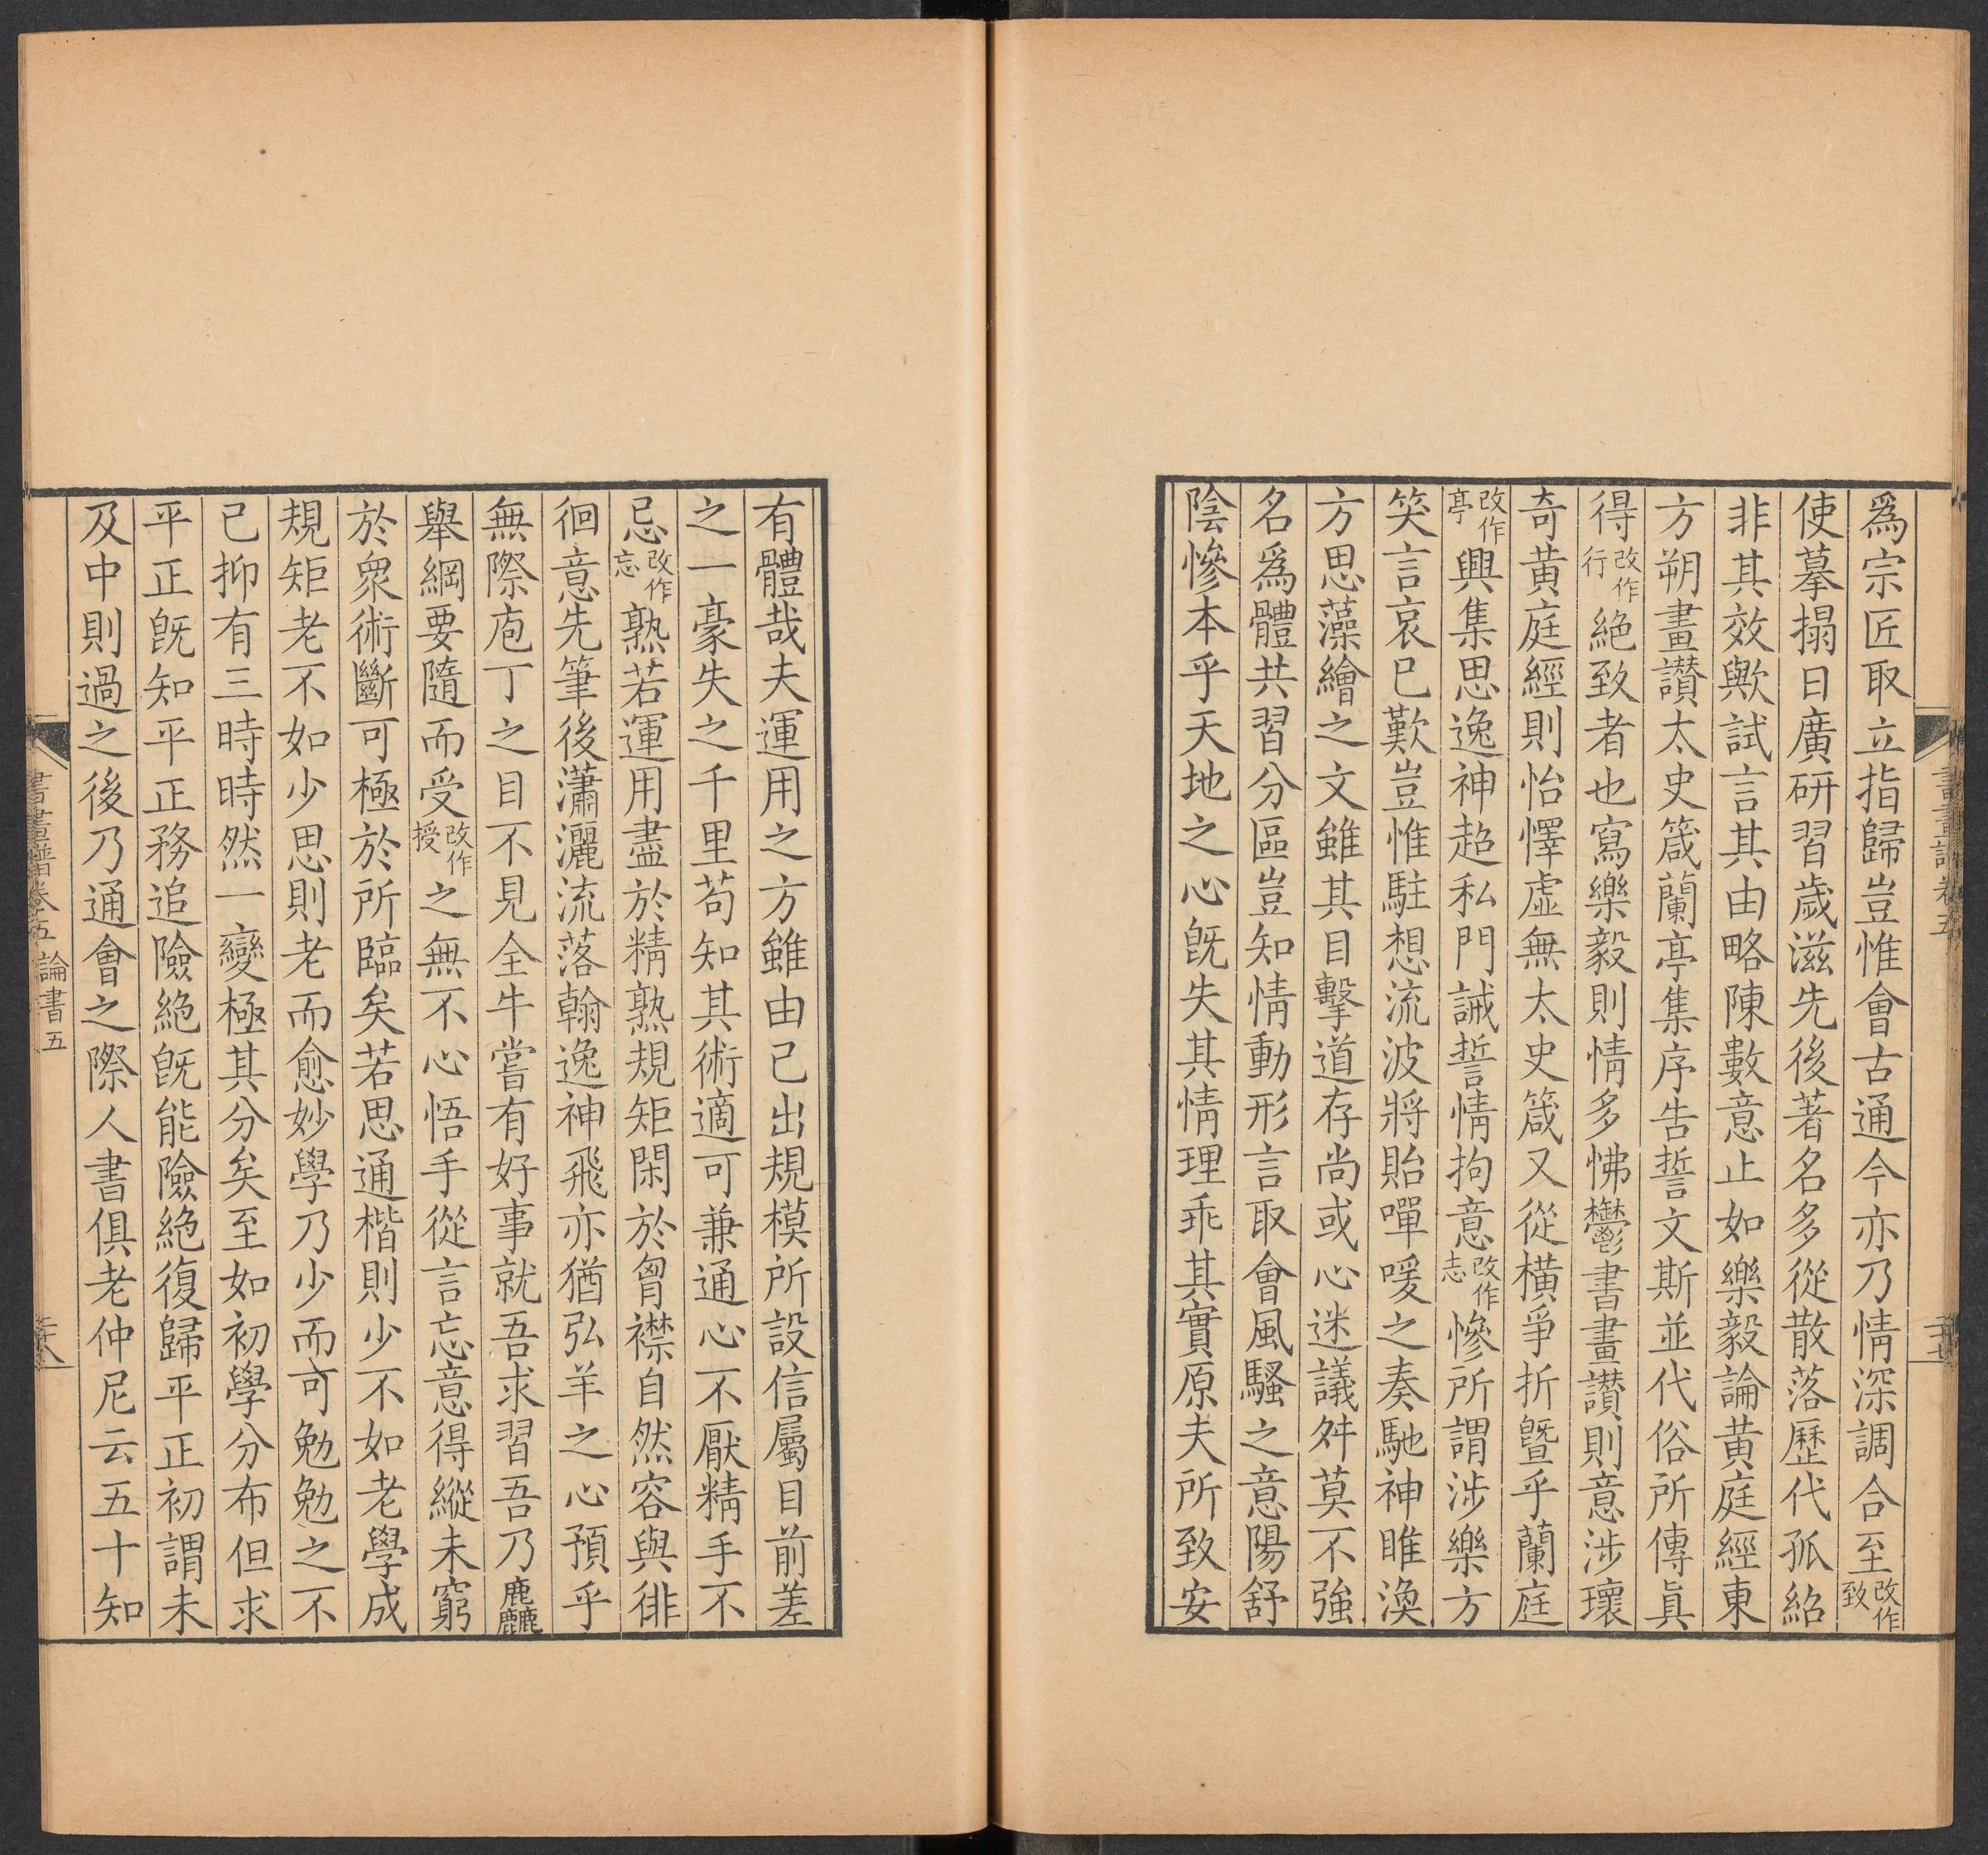 爲宗匠取立指歸豈惟會古通今亦乃情深調合至改作致
使摹搨日廣研習歲滋先後著名多從散落歷代孤紹
非其效歟試言其由略陳數意止如樂毅論黃庭經東
方朔畫讃太史箴蘭亭集序告誓文斯並代俗所傳眞
得改作行絶致者也寫樂毅則情多怫鬱書畫讃則意涉瓌
奇黃庭經則怡懌虛無太史箴又從橫爭折曁乎蘭庭
改作亭興集思逸神超私門誡誓情拘意改作志慘所謂涉樂方
笑言哀已歎豈惟駐想流波將貽嘽喛之奏馳神睢渙
方思藻繪之文雖其目擊道存尚或心迷議舛莫不強
名爲體共習分區豈知情動形言取會風騷之意陽舒
陰慘本乎天地之心旣失其情理乖其實原夫所致安
書畫譜卷五
有體哉夫運用之方雖由己出規模所設信屬目前差
之一豪失之千里苟知其術適可兼通心不厭精手不
忌改作忘熟若運用盡於精熟規矩閑於胷襟自然容與徘
徊意先筆後瀟灑流落翰逸神飛亦猶弘羊之心預乎
無際庖丁之目不見全牛嘗有好事就吾求習吾乃麤
舉綱要隨而受改作授之無不心悟手從言忘意得縱未窮
於衆術斷可極於所臨矣若思通楷則少不如老學成
規矩老不如少思則老而愈妙學乃少而可勉勉之不
已抑有三時時然一變極其分矣至如初學分布但求
平正旣知平正務追險絶旣能險絶復歸平正初謂未
及中則過之後乃通會之際人書俱老仲尼云五十知
書畫譜卷五 論書五